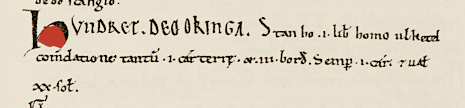 HVNDRET. DEDORINGA. Stanho .i. lib homo ulketel
comdatione tantū .i. car terre. & .iii. bord. Semp .i. car. 7 ual
xx. sol.